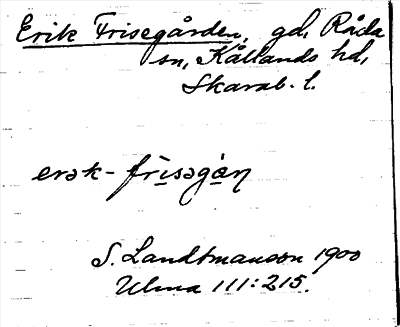 Erik Frisegården, gd, Råda
sn, Kållands hd,
Skarab. l.
erək-frìsəgàṇ
S. Landtmanson 1900
Ulma 111:215.